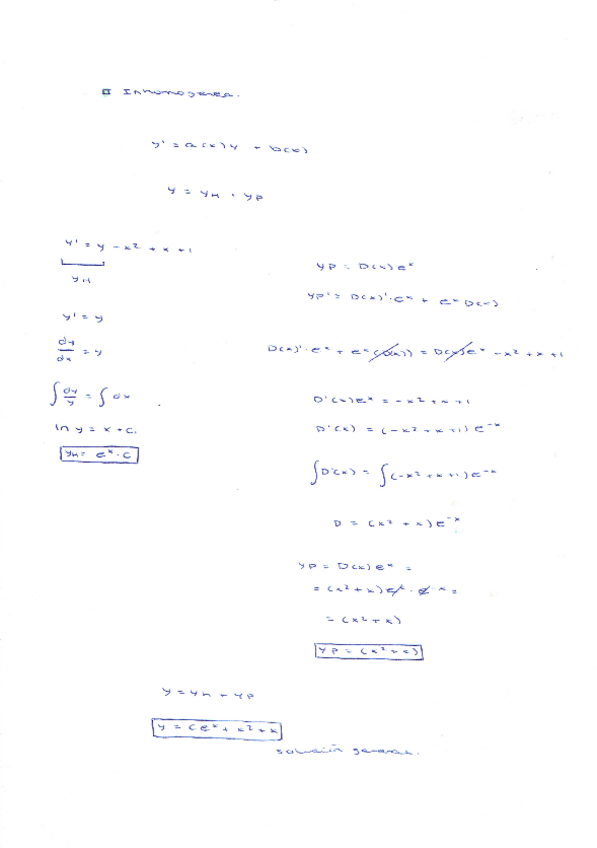 Inhomogenea.
y' = a(x)y + b(x)
y = yH + yp
y' = y - x² + x + 1
yH
y' = y
dy/dx = y
∫ dy/y = ∫ dx
ln y = x + C.
yH = eˣ · C
yp = D(x)eˣ
yp' = D(x)' · eˣ + eˣ D(x)
D(x)' · eˣ + eˣ(D(x)) = D(x)eˣ - x² + x + 1
D'(x)eˣ = -x² + x + 1
D'(x) = (-x² + x + 1)e⁻ˣ
∫D'(x) = ∫(-x² + x + 1)e⁻ˣ
D = (x² + x)e⁻ˣ
yp = D(x)eˣ =
= (x² + x)e⁻ˣ · eˣ =
= (x² + x)
yp = (x² + x)
y = yH + yp
y = Ceˣ + x² + x
solución general.